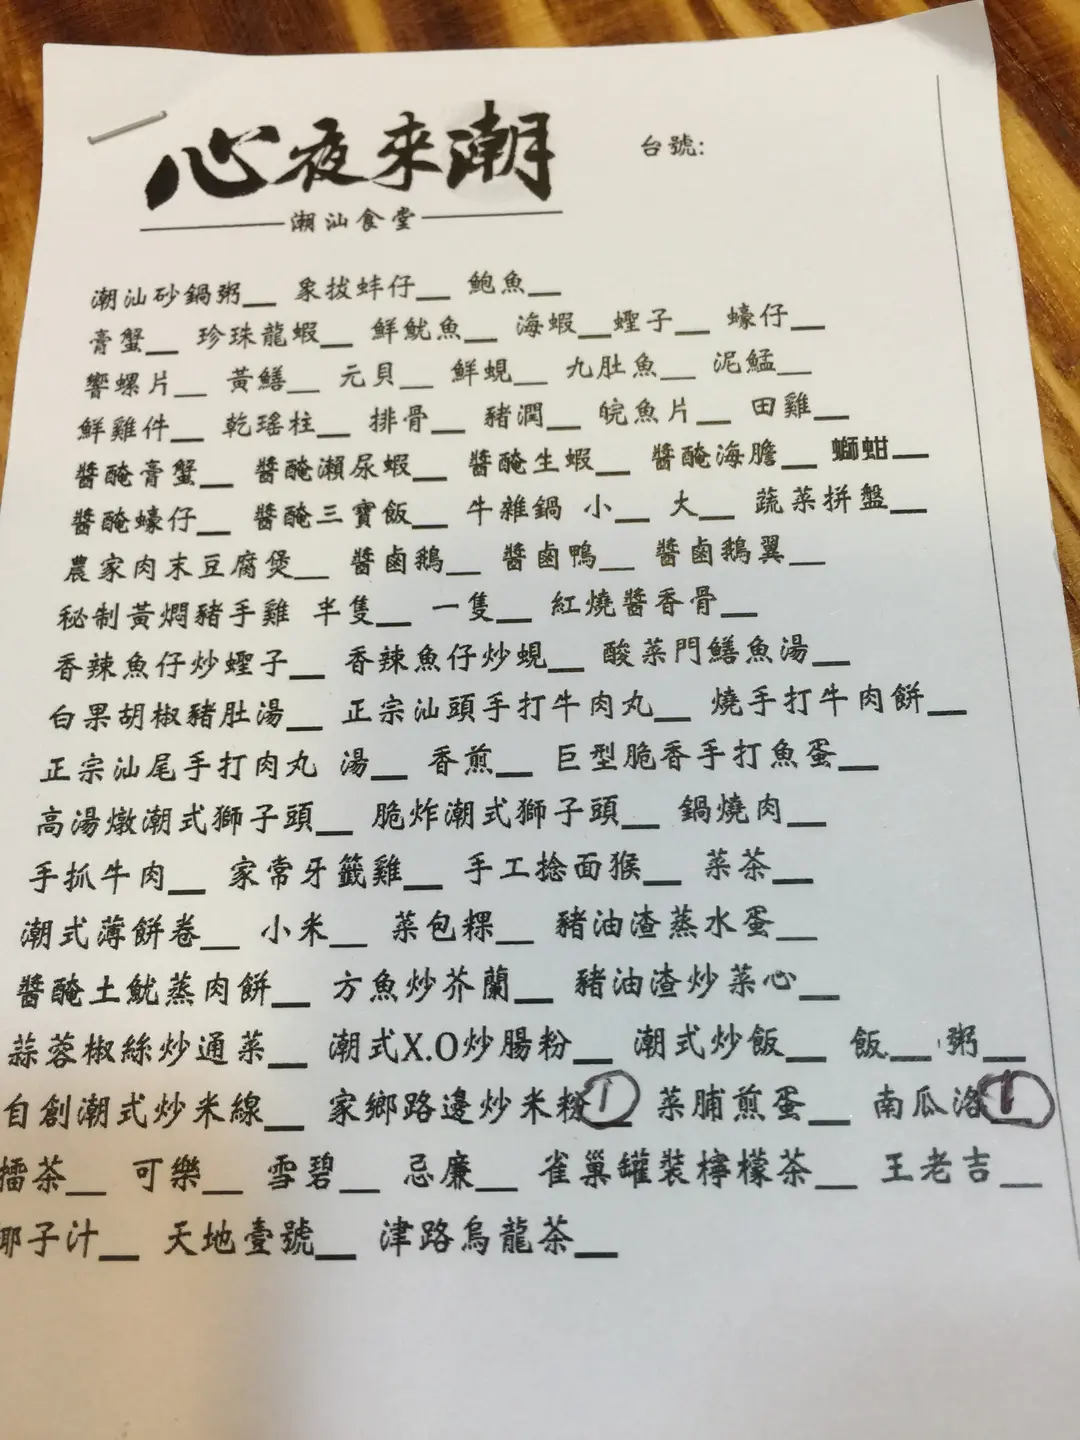 心夜來潮
台號:
潮汕食堂
潮汕砂鍋粥__ 象拔蚌仔__ 鮑魚__
膏蟹__ 珍珠龍蝦__ 鮮魷魚__ 海蝦__ 蟶子__ 蠔仔__
響螺片__ 黃鱔__ 元貝__ 鮮蜆__ 九肚魚__ 泥鯭__
鮮雞件__ 乾瑤柱__ 排骨__ 豬潤__ 皖魚片__ 田雞__
醬醃膏蟹__ 醬醃瀨尿蝦__ 醬醃生蝦__ 醬醃海膽__ 螄蚶__
醬醃蠔仔__ 醬醃三寶飯__ 牛雜鍋 小__ 大__ 蔬菜拼盤__
農家肉末豆腐煲__ 醬鹵鵝__ 醬鹵鴨__ 醬鹵鵝翼__
秘制黃燜豬手雞 半隻__ 一隻__ 紅燒醬香骨__
香辣魚仔炒蟶子__ 香辣魚仔炒蜆__ 酸菜門鱔魚湯__
白果胡椒豬肚湯__ 正宗汕頭手打牛肉丸__ 燒手打牛肉餅__
正宗汕尾手打肉丸 湯__ 香煎__ 巨型脆香手打魚蛋__
高湯燉潮式獅子頭__ 脆炸潮式獅子頭__ 鍋燒肉__
手抓牛肉__ 家常牙籤雞__ 手工捻面猴__ 菜茶__
潮式薄餅卷__ 小米__ 菜包粿__ 豬油渣蒸水蛋__
醬醃土魷蒸肉餅__ 方魚炒芥蘭__ 豬油渣炒菜心__
蒜蓉椒絲炒通菜__ 潮式X.O炒腸粉__ 潮式炒飯__ 飯__ 粥__
自創潮式炒米線__ 家鄉路邊炒米粉 1 菜脯煎蛋__ 南瓜洛 1
擂茶__ 可樂__ 雪碧__ 忌廉__ 雀巢罐裝檸檬茶__ 王老吉__
椰子汁__ 天地壹號__ 津路烏龍茶__